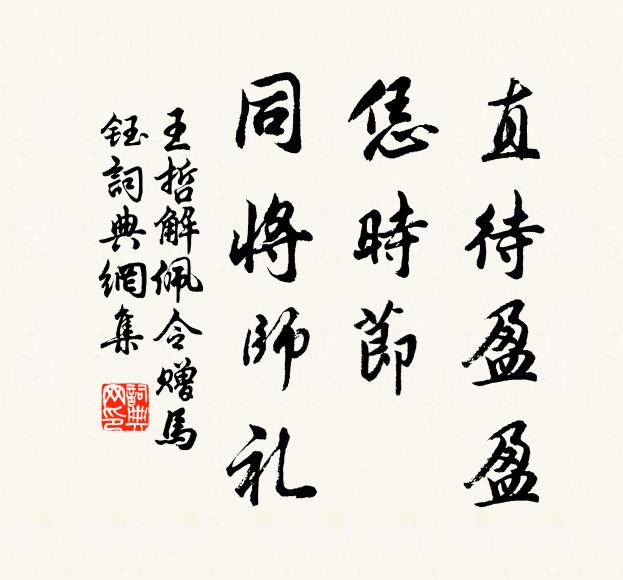 直待盈盈
恁時節
同將師礼
王哲解佩令贈馬
鈺詞典網集
詞典
网印